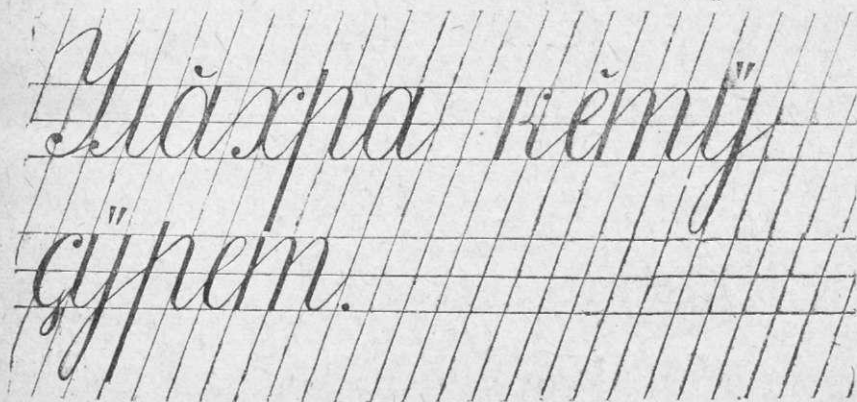 Улӑхра кӗтӳ
ҫӳрет.